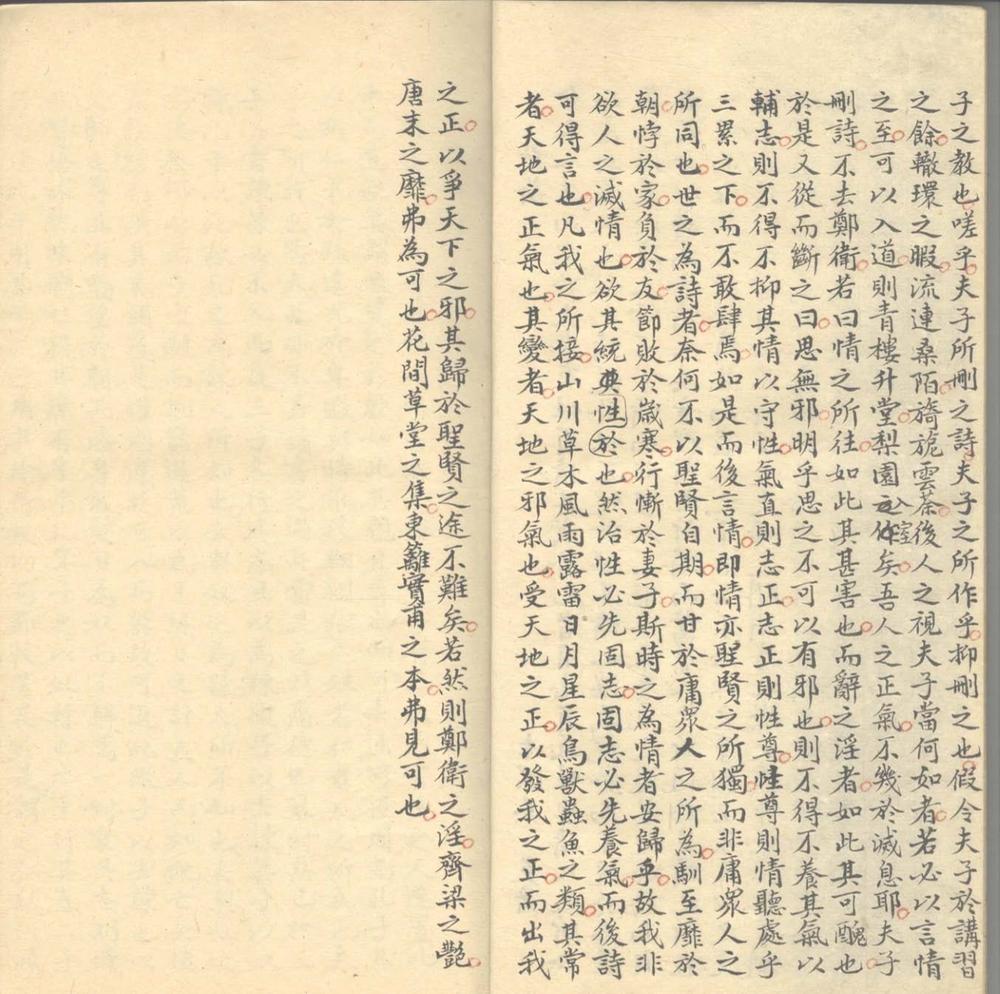 子之教也嗟乎夫子所刪之詩夫子之所作乎抑刪之也假令夫子於講習
之餘轍環之暇流連桑陌旖旎雲荼後人之視夫子當何如者若必以言情
之至可以入道則青樓升堂梨園入室矣吾人之正氣不幾於滅息耶夫子
刪詩不去鄭衛若曰情之所往如此其甚害也而辭之淫者如此其可醜也
於是又從而斷之曰思無邪明乎思之不可以有邪也則不得不養其氣以
輔志則不得不抑其情以守性氣直則志正志正則性尊性尊則情聽處乎
三累之下而不敢肆焉如是而後言情即情亦聖賢之所獨而非庸眾人之
所同也世之為詩者奈何不以聖賢自期而甘於庸眾人之所為馴至靡於
朝悖於家負於友節敗於歲寒行慚於妻子斯時之為情者安歸乎故我非
欲人之滅情也欲其統於性也然治性必先固志固志必先養氣而後詩
可得言也凡我之所接山川草木風雨露雷日月星辰鳥獸蟲魚之類其常
者天地之正氣也其變者天地之邪氣也受天地之正以發我之正而出我
之正以爭天下之邪其歸於聖賢之途不難矣若然則鄭衛之淫齊梁之艷
唐末之靡弗為可也花間草堂之集東籬實甫之本弗見可也